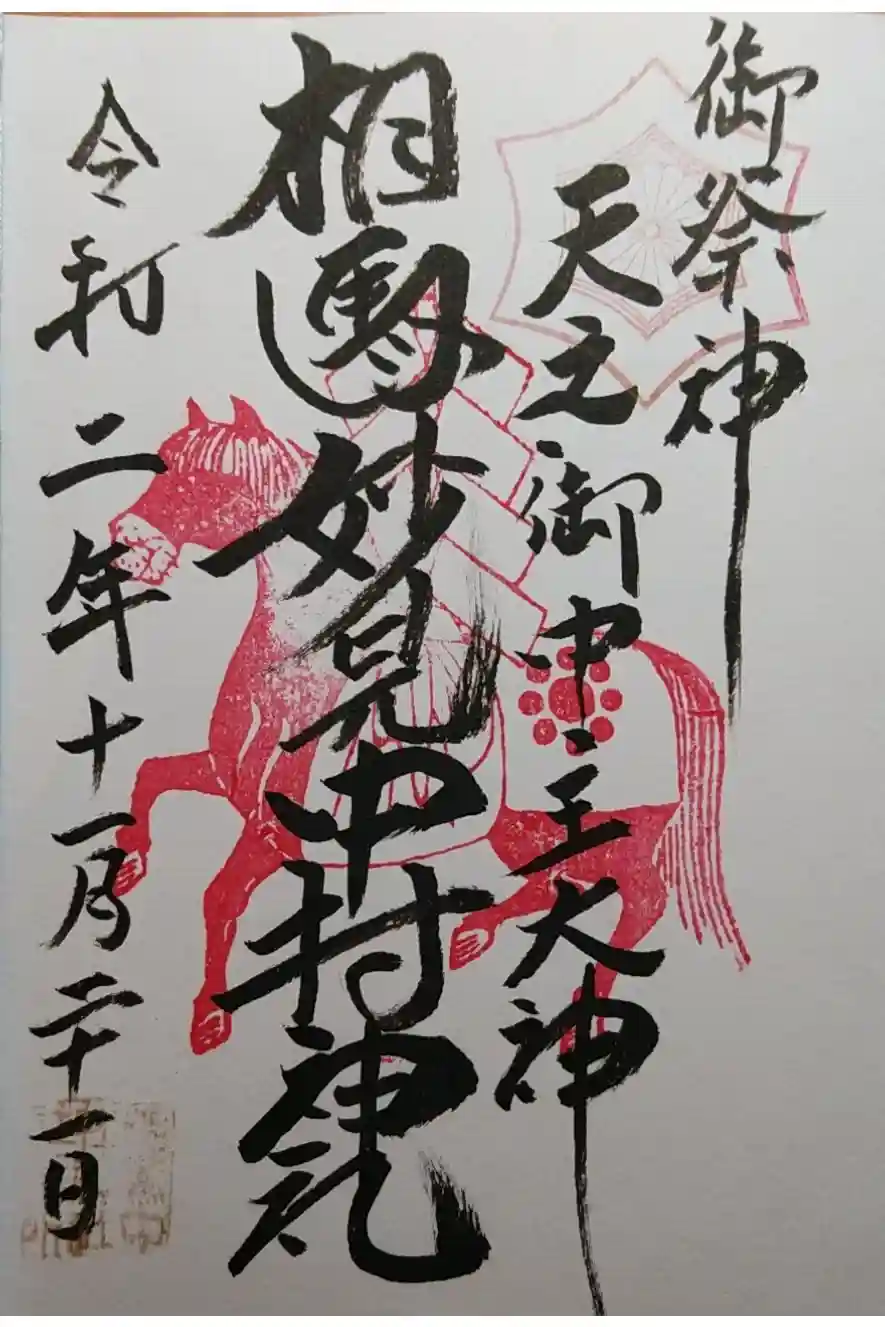 御祭神
天之御中主大神
相馬妙見中村神社
令和二年十一月二十一日